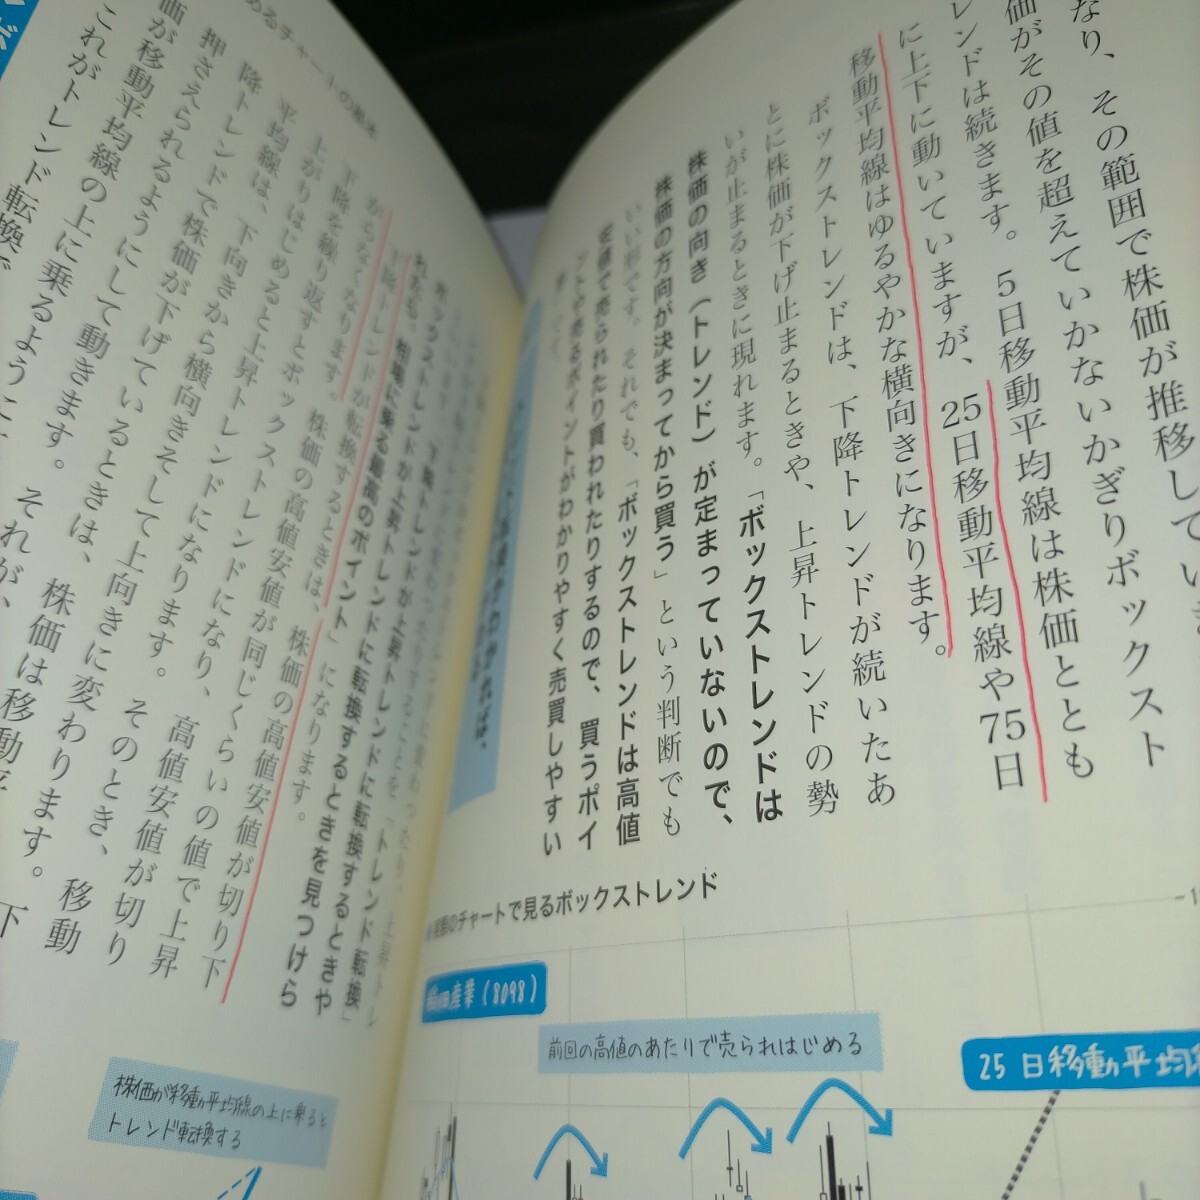 ていま
なり、その範囲で株価が推移し
価がその値を超えていかないかぎりボックスト
レンドは続きます。5日移動平均線は株価ととも
に上下に動いていますが、25日移動平均線や75日
移動平均線はゆるやかな横向きになります。
ボックストレンドは、下降トレンドが続いたあ
とに株価が下げ止まるときや、上昇トレンドの勢
いが止まるときに現れます。「ボックストレンドは
株価の向き(トレンド)が定まっていないので、
株価の方向が決まってから買う」という判断でも
いい形です。それでも、「ボックストレンドは高値
安値で売られたり買われたりするので、買うポイ
ントや売るポイントがわかりやすく売買しやすい
実際のチャートで見るボックストレンド
産業(8098)
前回の高値のあたりで売られはじめる
25日移動平均
めるチャートの基本
「トレンド転換」
下降トレンドが上昇トレンドに転換するときや
ボックストレンドが上昇トレンドに転換するときを見つけら
れたら、相場に乗る最高のポイント」になります。
下降トレンドが転換するときは、株価の高値安値が切り下
がらなくなります。株価の高値安値が同じくらいの値で上昇
下降を繰り返すとボックストレンドになり、高値安値が切り
上がりはじめると上昇トレンドになります。そのとき、移動
平均線は、下向きから横向きそして上向きに変わります。下
降トレンドで株価が下げているときは、株価は移動平
押さえられるようにして動きます。それが、
価が移動平均線の上に乗るように
これがトレンド転換で
株価が移動平均線の上に乗ると
トレンド転換する